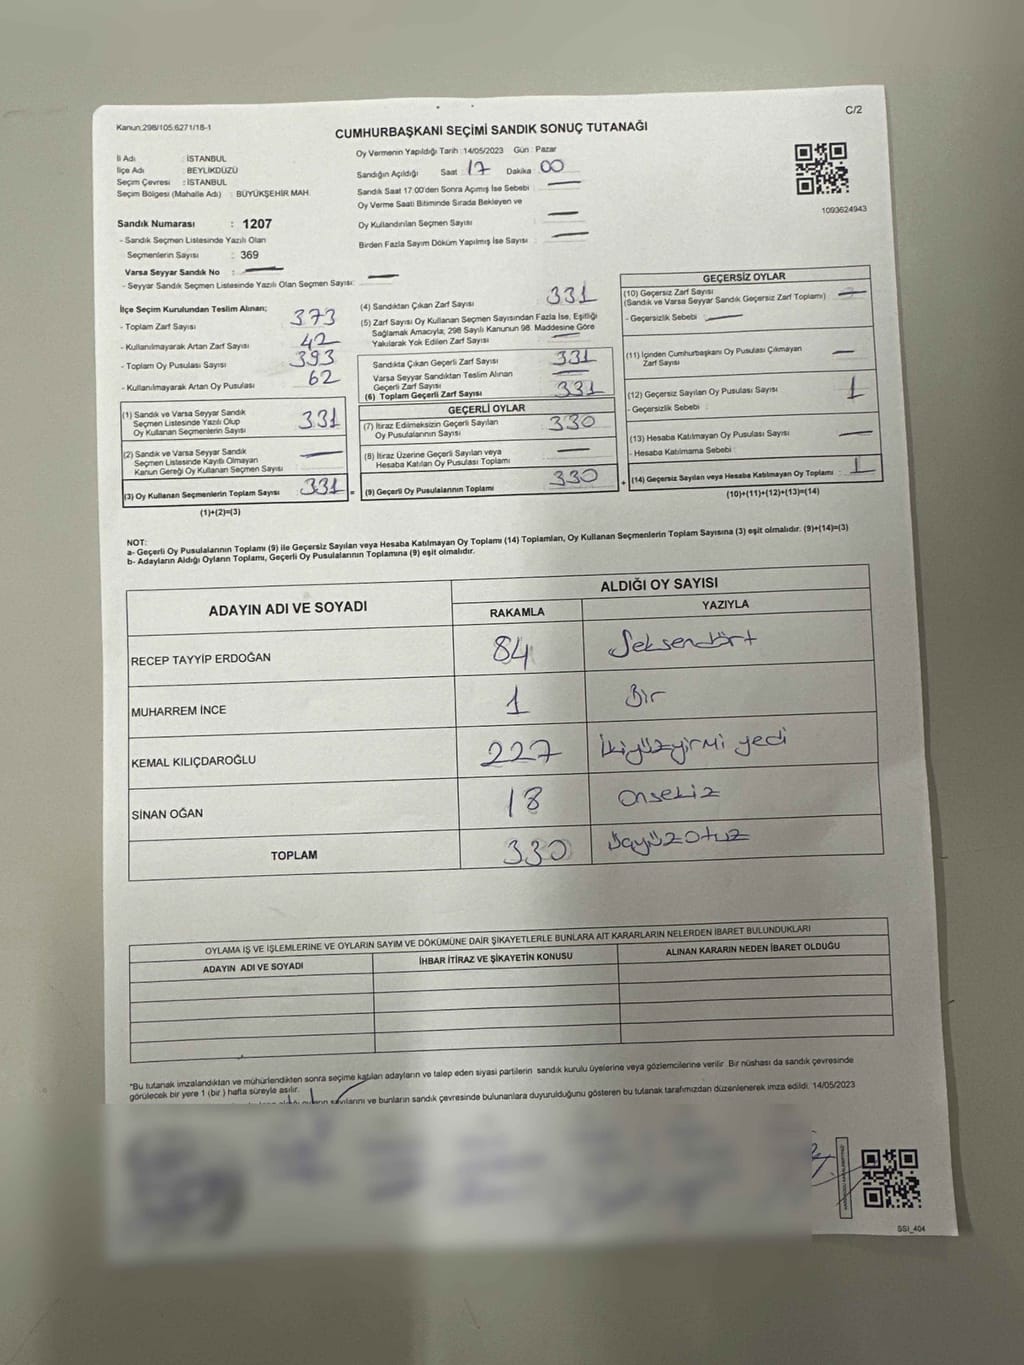 Kanun:298/105;6271/18-1
C/2
CUMHURBAŞKANI SEÇİMİ SANDIK SONUÇ TUTANAĞI
İl Adı : İSTANBUL
İlçe Adı : BEYLİKDÜZÜ
Seçim Çevresi : İSTANBUL
Seçim Bölgesi (Mahalle Adı) : BÜYÜKŞEHİR MAH.
Oy Vermenin Yapıldığı Tarih : 14/05/2023 Gün : Pazar
Sandığın Açıldığı Saat 17 Dakika 00
Sandık Saat 17:00'den Sonra Açımış İse Sebebi
Oy Verme Saati Bitiminde Sırada Bekleyen ve
Oy Kullandırılan Seçmen Sayısı
Birden Fazla Sayım Döküm Yapılmış İse Sayısı
1093624943
Sandık Numarası : 1207
- Sandık Seçmen Listesinde Yazılı Olan
Seçmenlerin Sayısı : 369
Varsa Seyyar Sandık No :
- Seyyar Sandık Seçmen Listesinde Yazılı Olan Seçmen Sayısı:
İlçe Seçim Kurulundan Teslim Alınan;
- Toplam Zarf Sayısı 373
- Kullanılmayarak Artan Zarf Sayısı 42
- Toplam Oy Pusulası Sayısı 393
- Kullanılmayarak Artan Oy Pusulası 62
(1) Sandık ve Varsa Seyyar Sandık
Seçmen Listesinde Yazılı Olup
Oy Kullanan Seçmenlerin Sayısı 331
(2) Sandık ve Varsa Seyyar Sandık
Seçmen Listesinde Kayıtlı Olmayan
Kanun Gereği Oy Kullanan Seçmen Sayısı
(3) Oy Kullanan Seçmenlerin Toplam Sayısı 331 =
(1)+(2)=(3)
(4) Sandıktan Çıkan Zarf Sayısı 331
(5) Zarf Sayısı Oy Kullanan Seçmen Sayısından Fazla İse, Eşitliği
Sağlamak Amacıyla; 298 Sayılı Kanunun 98. Maddesine Göre
Yakılarak Yok Edilen Zarf Sayısı
Sandıkta Çıkan Geçerli Zarf Sayısı 331
Varsa Seyyar Sandıktan Teslim Alınan
Geçerli Zarf Sayısı
(6) Toplam Geçerli Zarf Sayısı 331
GEÇERLİ OYLAR
(7) İtiraz Edilmeksizin Geçerli Sayılan
Oy Pusulalarının Sayısı 330
(8) İtiraz Üzerine Geçerli Sayılan veya
Hesaba Katılan Oy Pusulası Toplamı
(9) Geçerli Oy Pusulalarının Toplamı 330 +
GEÇERSİZ OYLAR
(10) Geçersiz Zarf Sayısı
(Sandık ve Varsa Seyyar Sandık Geçersiz Zarf Toplamı)
- Geçersizlik Sebebi :
(11) İçinden Cumhurbaşkanı Oy Pusulası Çıkmayan
Zarf Sayısı
(12) Geçersiz Sayılan Oy Pusulası Sayısı 1
- Geçersizlik Sebebi :
(13) Hesaba Katılmayan Oy Pusulası Sayısı
- Hesaba Katılmama Sebebi :
(14) Geçersiz Sayılan veya Hesaba Katılmayan Oy Toplamı 1
(10)+(11)+(12)+(13)=(14)
NOT:
a- Geçerli Oy Pusulalarının Toplamı (9) ile Geçersiz Sayılan veya Hesaba Katılmayan Oy Toplamı (14) Toplamları, Oy Kullanan Seçmenlerin Toplam Sayısına (3) eşit olmalıdır. (9)+(14)=(3)
b- Adayların Aldığı Oyların Toplamı, Geçerli Oy Pusulalarının Toplamına (9) eşit olmalıdır.
ADAYIN ADI VE SOYADI
ALDIĞI OY SAYISI
RAKAMLA YAZIYLA
RECEP TAYYİP ERDOĞAN 84 Seksendört
MUHARREM İNCE 1 Bir
KEMAL KILIÇDAROĞLU 227 İkiyüzyirmi yedi
SİNAN OĞAN 18 Onsekiz
TOPLAM 330 Üçyüzotuz
OYLAMA İŞ VE İŞLEMLERİNE VE OYLARIN SAYIM VE DÖKÜMÜNE DAİR ŞİKAYETLERLE BUNLARA AİT KARARLARIN NELERDEN İBARET BULUNDUKLARI
ADAYIN ADI VE SOYADI İHBAR İTİRAZ VE ŞİKAYETİN KONUSU ALINAN KARARIN NEDEN İBARET OLDUĞU
*Bu tutanak imzalandıktan ve mühürlendikten sonra seçime katılan adayların ve talep eden siyasi partilerin sandık kurulu üyelerine veya gözlemcilerine verilir. Bir nüshası da sandık çevresinde
görülecek bir yere 1 (bir ) hafta süreyle asılır.
sayılarını ve bunların sandık çevresinde bulunanlara duyurulduğunu gösteren bu tutanak tarafımızdan düzenlenerek imza edildi. 14/05/2023
SSI_404